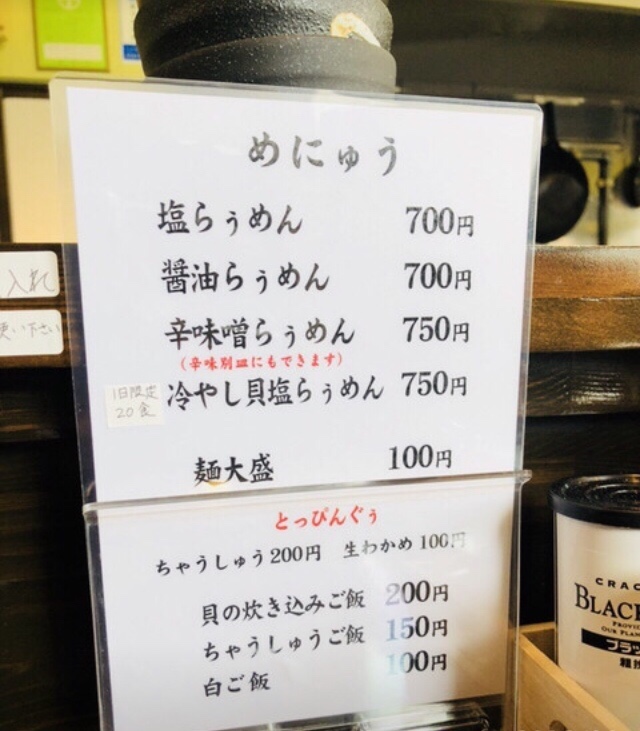 めにゅう
塩らぅめん 700円
醤油らぅめん 700円
辛味噌らぅめん 750円
(辛味別皿にもできます)
1日限定
20食
冷やし貝塩らぅめん 750円
麺大盛 100円
とっぴんぐぅ
ちゃうしゅう200円 生わかめ100円
貝の炊き込みご飯 200円
ちゃうしゅうご飯 150円
白ご飯 100円
入れ
使い下さい
CRAC
BLACK
PROVID
OUR PLAN
ブラッ
粗挽